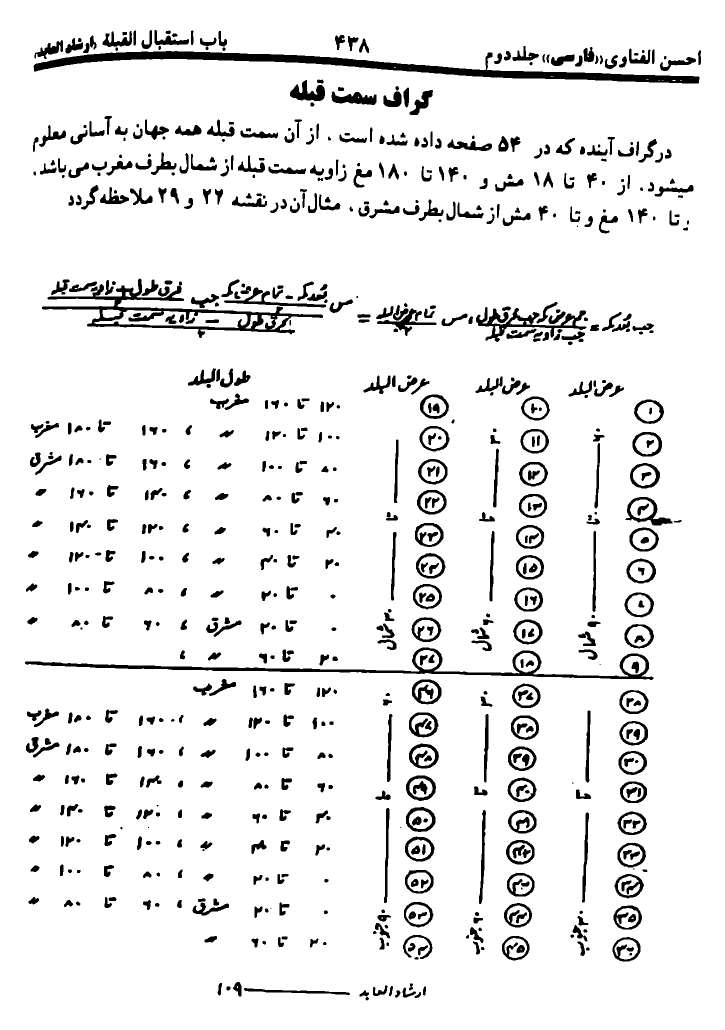 احسن الفتاوی «فارسی» جلد دوم ۴۳۸ باب استقبال القبلة «ارشاد العابد»
گراف سمت قبله
درگراف آینده که در ۵۴ صفحه داده شده است . از آن سمت قبله همه جهان به آسانی معلوم
میشود. از ۴۰ تا ۱۸ مش و ۱۴۰ تا ۱۸۰ مغ زاویه سمت قبله از شمال بطرف مغرب می باشد .
و تا ۱۴۰ مغ و تا ۴۰ مش از شمال بطرف مشرق . مثال آن در نقشه ۲۲ و ۲۹ ملاحظه گردد
عرض البلد عرض البلد عرض البلد طول البلد
۱ ۱۰ ۱۹ ۱۲۰ تا ۱۶۰ مغرب
۲ ۱۱ ۲۰ ۱۰۰ تا ۱۲۰ 〃 ، ۱۶۰ تا ۱۸۰ مغرب
۳ ۱۲ ۲۱ ۸۰ تا ۱۰۰ 〃 ، ۱۶۰ تا ۱۸۰ مشرق
۴ ۱۳ ۲۲ ۶۰ تا ۸۰ 〃 ، ۱۴۰ تا ۱۶۰ 〃
۵ ۱۴ ۲۳ ۴۰ تا ۶۰ 〃 ، ۱۲۰ تا ۱۴۰ 〃
۶ ۱۵ ۲۴ ۲۰ تا ۴۰ 〃 ، ۱۰۰ تا ۱۲۰ 〃
۷ ۱۶ ۲۵ ۰ تا ۲۰ 〃 ، ۸۰ تا ۱۰۰ 〃
۸ ۱۷ ۲۶ ۰ تا ۲۰ مشرق ، ۶۰ تا ۸۰ 〃
۹ ۱۸ ۲۷ ۲۰ تا ۶۰ 〃 ،
۶۰ تا ۹۰ شمال
۳۰ تا ۶۰ شمال
تا ۳۰ شمال
۲۸ ۳۷ ۴۶ ۱۲۰ تا ۱۶۰ مغرب
۲۹ ۳۸ ۴۷ ۱۰۰ تا ۱۲۰ 〃 ، ۱۶۰ تا ۱۸۰ مغرب
۳۰ ۳۹ ۴۸ ۸۰ تا ۱۰۰ 〃 ، ۱۶۰ تا ۱۸۰ مشرق
۳۱ ۴۰ ۴۹ ۶۰ تا ۸۰ 〃 ، ۱۴۰ تا ۱۶۰ 〃
۳۲ ۴۱ ۵۰ ۴۰ تا ۶۰ 〃 ، ۱۲۰ تا ۱۴۰ 〃
۳۳ ۴۲ ۵۱ ۲۰ تا ۴۰ 〃 ، ۱۰۰ تا ۱۲۰ 〃
۳۴ ۴۳ ۵۲ ۰ تا ۲۰ 〃 ، ۸۰ تا ۱۰۰ 〃
۳۵ ۴۴ ۵۳ ۰ تا ۲۰ مشرق ، ۶۰ تا ۸۰ 〃
۳۶ ۴۵ ۵۴ ۲۰ تا ۶۰ 〃
تا ۳۰ جنوب
۳۰ تا ۶۰ جنوب
۶۰ تا ۹۰ جنوب
ارشاد العابد ——— ۱۰۹